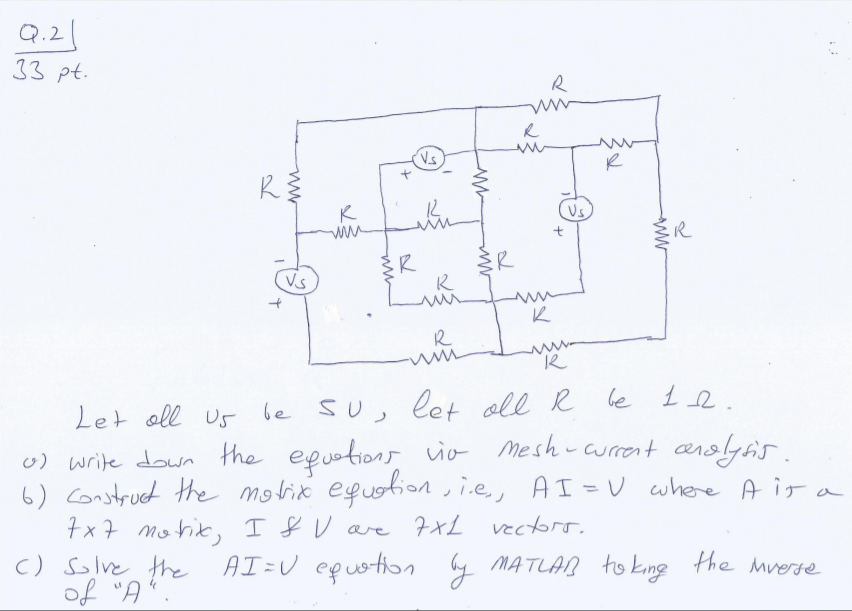 Q.2
33 pt.
R
R
Vs
+ -
R
R
R
R
-
Vs
+
R
-
Vs
+
R
R
R
R
R
R
Let all Us be 5V, let all R be 1 Ω.
a) write down the equations via mesh-current analysis.
b) Construct the matrix equation, i.e., AI = V where A is a
7x7 matrix, I & V are 7x1 vectors.
c) Solve the AI=V equation by MATLAB taking the inverse
of "A".